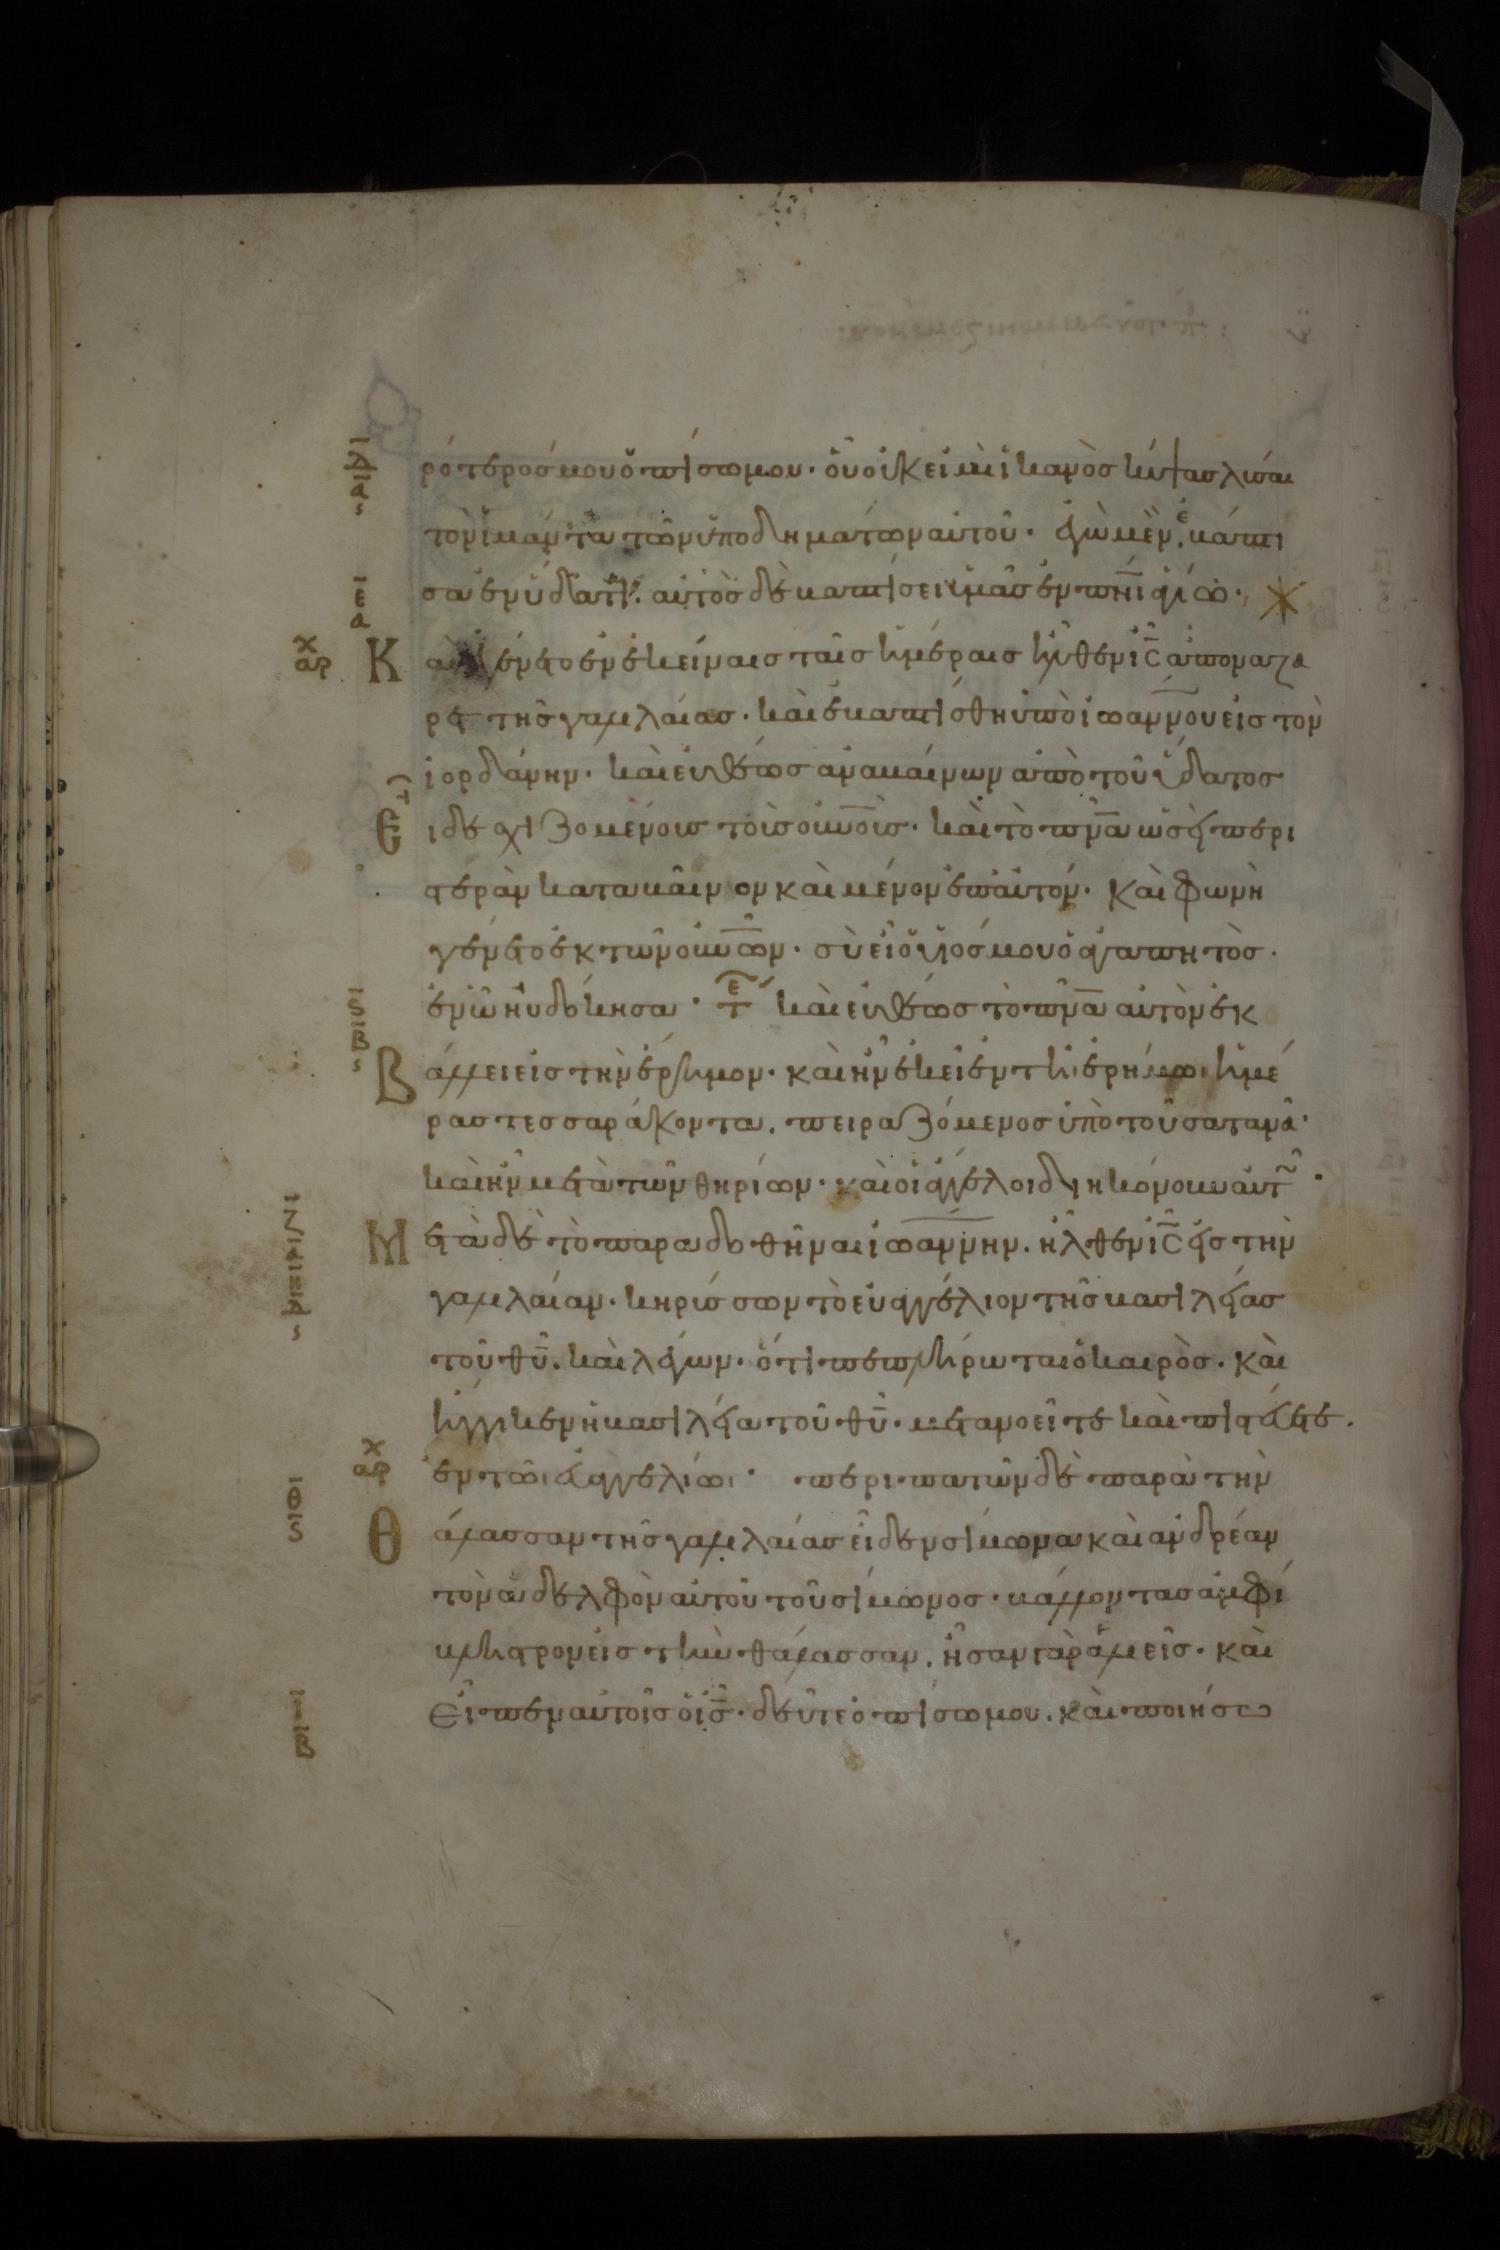 ρότερός μου ὀπίσω μου· οὗ οὐκ εἰμὶ ἱκανὸς κύψας λῦσαι
τὸν ἱμάντα τῶν ὑποδημάτων αὐτοῦ· ἐγὼ μὲν ἐβάπτι
σα ἐν ὕδατι· αὐτὸς δὲ βαπτίσει ὑμᾶς ἐν πνι ἁγίω·
Κ αὶ ἐγένετο ἐν ἐκείναις ταῖς ἡμέραις ἦλθεν ὁ ις ἀπὸ ναζα
ρὲτ τῆς γαλιλαίας· καὶ ἐβαπτίσθη ὑπὸ ἰωάννου εἰς τὸν
ἰορδάνην· καὶ εὐθέως ἀναβαίνων ἀπὸ τοῦ ὕδατος
Ε ἶδε σχιζομένους τοὺς οὐνους· καὶ τὸ πνα ὡσεὶ περι
στερὰν καταβαῖνον καὶ μένον ἐπ αὐτόν· καὶ φωνὴ
γέγενετο ἐκ τῶν οὐνων· σὺ εἶ ὁ υἱός μου ὁ ἀγαπητὸς·
ἐν ὧ ηὐδόκησα· τε καὶ εὐθέως τὸ πνα αὐτὸν ἐκ
Β άλλει εἰς τὴν ἔρημον· καὶ ἦν ἐκεῖ ἐν τῆι ἐρήμωι ἡμέ
ρας τεσσαράκοντα, πειραζόμενος ὑπὸ τοῦ σατανᾶ·
καὶ ἦν μετὰ τῶν θηρίων· καὶ οἱ ἄγγελοι διηκόνουν αὐτ
Μ ετὰ δὲ τὸ παραδοθῆναι ἰωάννην, ἦλθεν ὁ ις εἰς τὴν
γαλιλαίαν· κηρύσσων τὸ εὐαγγέλιον τῆς βασιλείας
τοῦ θυ, καὶ λέγων· ὅτι πεπλήρωται ὁ καιρὸς· καὶ
ἤγγικεν ἡ βασιλεία τοῦ θυ· μετανοεῖτε καὶ πιστεύετε
ἐν τῶι εὐαγγελίωι· περιπατῶν δὲ παρὰ τὴν
Θ άλασσαν τῆς γαλιλαίας εἶδεν σίμωνα καὶ ἀνδρέαν
τὸν ἀδελφὸν αὐτοῦ τοῦ σίμωνος· βάλλοντας ἀμφί
βληστρον εἰς τὴν θάλασσαν, ἦσαν γὰρ ἁλιεῖς· καὶ
εἶπεν αὐτοῖς ὁ ις· δεῦτε ὀπίσω μου, καὶ ποιήσω